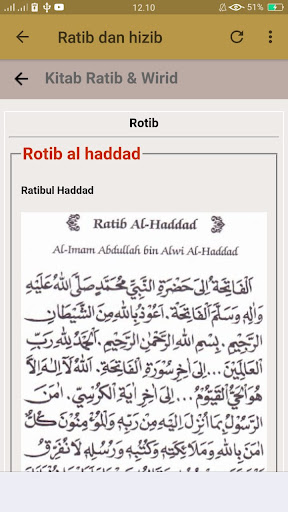 12.10
51%
Ratib dan hizib
Kitab Ratib & Wirid
Rotib
Rotib al haddad
Ratibul Haddad
Ratib Al-Haddad
Al-Imam Abdullah bin Alwi Al-Haddad
اَلْفَاتِحَةُ اِلَى حَضْرَةِ النَّبِيِّ مُحَمَّدٍ صَلَّى اللهُ عَلَيْهِ
وَاٰلِهِ وَسَلَّمَ اَلْفَاتِحَةُ. اَعُوْذُ بِاللهِ مِنَ الشَّيْطَانِ
الرَّجِيْمِ. بِسْمِ اللهِ الرَّحْمٰنِ الرَّحِيْمِ. اَلْحَمْدُ لِلّٰهِ رَبِّ
الْعَالَمِيْنَ... اِلَى اٰخِرِ سُوْرَةِ الْفَاتِحَةِ. اَللهُ لَا اِلٰهَ اِلَّا
هُوَ الْحَيُّ الْقَيُّوْمُ... اِلَى اٰخِرِ اٰيَةِ الْكُرْسِيِّ. اٰمَنَ
الرَّسُوْلُ بِمَا اُنْزِلَ اِلَيْهِ مِنْ رَبِّهِ وَالْمُؤْمِنُوْنَ كُلٌّ
اٰمَنَ بِاللهِ وَمَلَائِكَتِهِ وَكُتُبِهِ وَرُسُلِهِ لَا نُفَرِّقُ